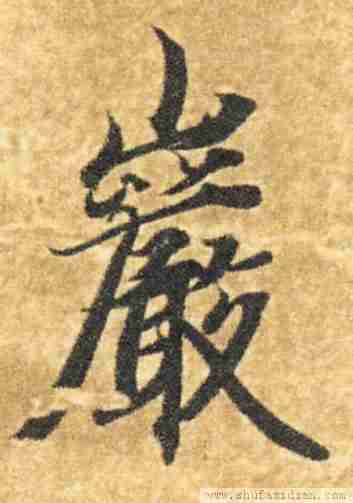 巖
www.shufazidian.com